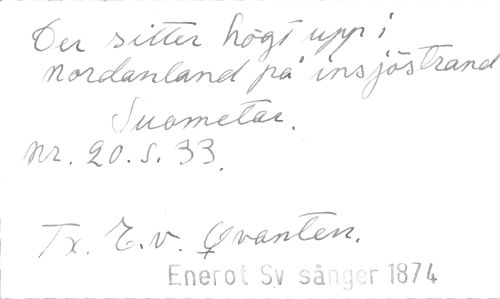 Der sitter högt upp i
nordanland på insjöstrand
Suometar.
nr. 20. s. 33.
Tx. E. v. Qvanten.
Enerot Sv sånger 1874